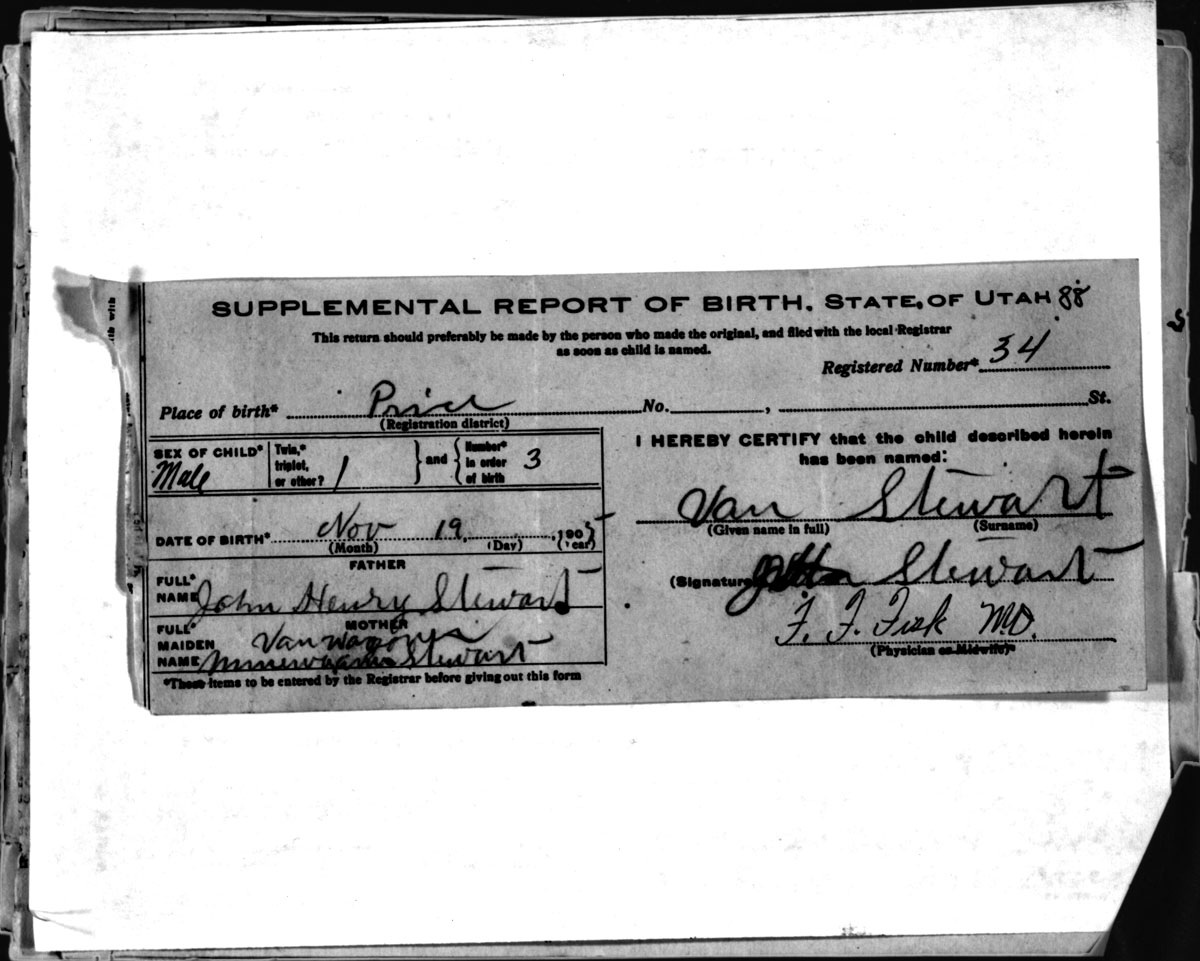 SUPPLEMENTAL REPORT OF BIRTH. STATE OF UTAH 88
This return should preferably be made by the person who made the original, and filed with the local Registrar
as soon as child is named.
Registered Number* 34
Place of birth* Price No. , St.
(Registration district)
SEX OF CHILD* Male
Twin,* triplet, or other? 1 } and { Number* in order of birth 3
DATE OF BIRTH* Nov 19, 1905
(Month) (Day) (Year)
FATHER
FULL* NAME John Henry Stewart
MOTHER
FULL* MAIDEN NAME Van Wagoner Stewart
*These items to be entered by the Registrar before giving out this form
I HEREBY CERTIFY that the child described herein
has been named:
Van Stewart
(Given name in full) (Surname)
(Signature Stewart
F. F. Fisk M.D.
(Physician or Midwife)*